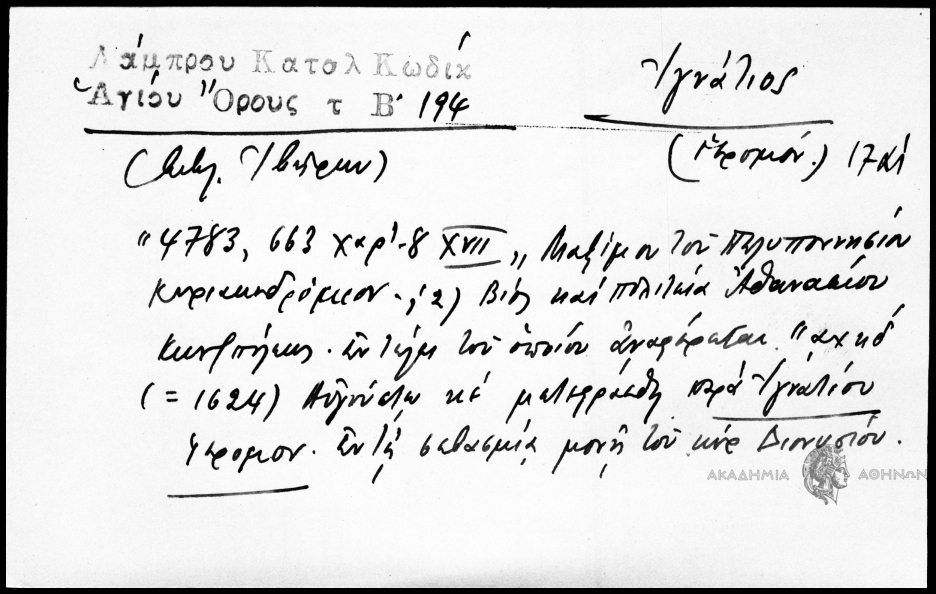 Λάμπρου Καταλ Κωδίκ
Ἁγίου Ὄρους τ Β' 194
Ἰγνάτιος
(Βιβλ. Ἰβήρων)
(Ἱερομόν.) 17αι
"4783, 663 χαρ. 8 XVII „ Μαξίμου τοῦ Πελοποννησίου
Κυριακοδρόμιον. 2) Βίος καί πολιτεία Ἀθανασίου
Κων/πόλεως. Ἐν τέλει τοῦ ὁποίου ἀναφέρεται "αχκδ
(= 1624) Αὐγούστῳ κε μετεφράσθη παρά Ἰγνατίου
Ἱερομον. ἐν τῇ σεβασμίᾳ μονῇ τοῦ κύρ Διονυσίου.
ΑΚΑΔΗΜΙΑ ΑΘΗΝΩΝ